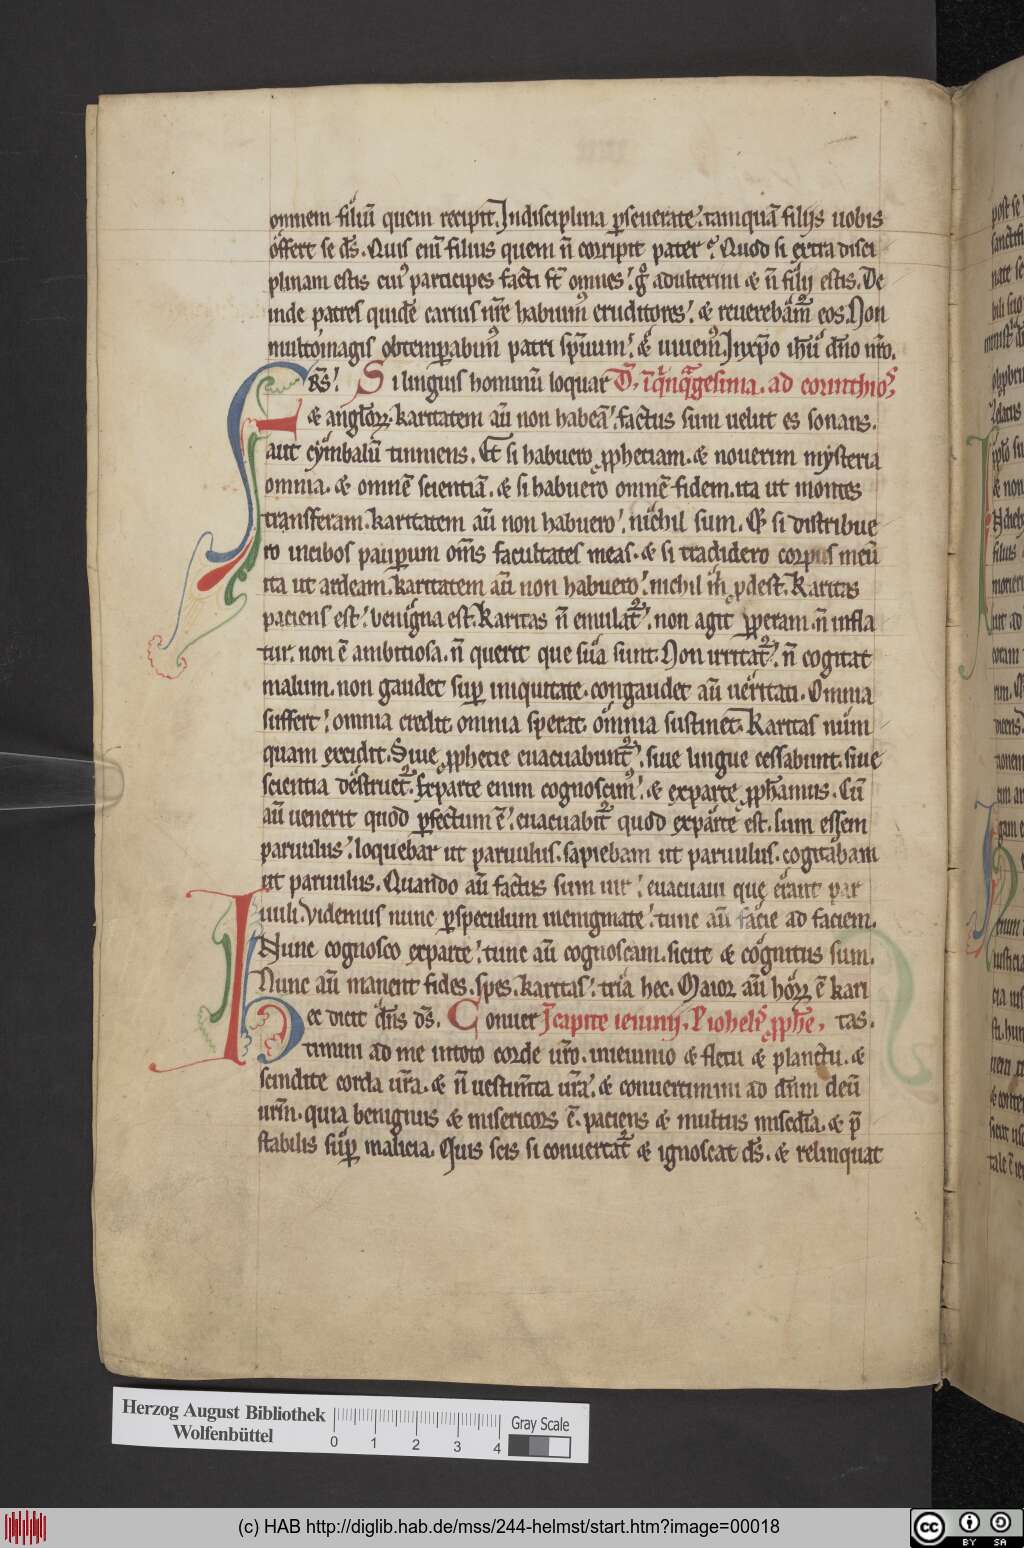 omnem filiū quem recipit. Jndisciplina ꝑseuerate. tamquā filijs uobis
offert se ds̄. Quis eni̅ filius quem n̄ corripit pater? Quod si extra disci
plinam estis cuiꝰ participes facti st̄ omnes. gͦ adulterini & n̄ filij estis. De
inde patres quidē carnis nr̄e habuimꝰ eruditores. & reuerebam̄ eos. Non
multomagis obtemperabimꝰ patri sp̄uum. & uiuemꝰ. Jnxp̄o ih̄u dn̄o nr̄o.
FRS̄. Si linguis hominū loquar D̄. ī qͥnqͣgesima. ad corinthios
& anglorꝝ. karitatem aū non habeā. factus sum uelut es sonans.
aut cymbalū tinniens. Et si habuero ꝓphetiam. & nouerim mysteria
omnia. & omnē scientiā. & si habuero omnē fidem. ita ut montes
transferam. karitatem aū non habuero. nichil sum. Et si distribue
ro incibos pauꝑum om̄s facultates meas. & si tradidero corpus meū
ita ut ardeam. karitatem aū non habuero. nichil m̄ ꝓdest. Karitas
paciens est. benigna est. Karitas n̄ emulat᷑. non agit ꝑperam. n̄ infla
tur. non ē ambitiosa. n̄ querit que sua sunt. Non irritat᷑. n̄ cogitat
malum. non gaudet suꝑ iniquitate. congaudet aū ueritati. Omnia
suffert. omnia credit. omnia sperat. omnia sustinet. Karitas num
quam excidit. Siue ꝓphecie euacuabunt᷑. siue lingue cessabunt. siue
scientia destruet᷑. Exparte enim cognoscimꝰ. & exparte ꝓph̄amus. Cū
aū uenerit quod ꝑfectum ē. euacuabit᷑ quod exparte est. Cum essem
paruulus. loquebar ut paruulus. sapiebam ut paruulus. cogitabam
ut paruulus. Quando aū factus sum uir. euacuaui que erant par
uuli. Videmus nunc ꝑspeculum inenigmate. tunc aū facie ad faciem.
Nunc cognosco exparte. tunc aū cognoscam. sicut & cognitus sum.
Nunc aū manent fides. spes. karitas. tria hec. Maior aū horꝝ ē kari
Hec dicit dn̄s ds̄. Conuer Jcapite ieiunij. L̄ iohelꝭ ꝓph̄e. tas.
timini ad me intoto corde ur̄o. inieiunio & fletu & planctu. &
scindite corda ur̄a. & n̄ uestim̄ta ur̄a. & conuertimini ad dn̄m deū
ur̄m. quia benignus & misericors ē. paciens & multus misc̄dia. & p̄
stabilis suꝑ malicia. Quis scit si conuertat᷑ & ignoscat ds̄. & relinquat
Herzog August Bibliothek
Wolfenbüttel
0 1 2 3 4
Gray Scale
(c) HAB http://diglib.hab.de/mss/244-helmst/start.htm?image=00018
cc BY SA